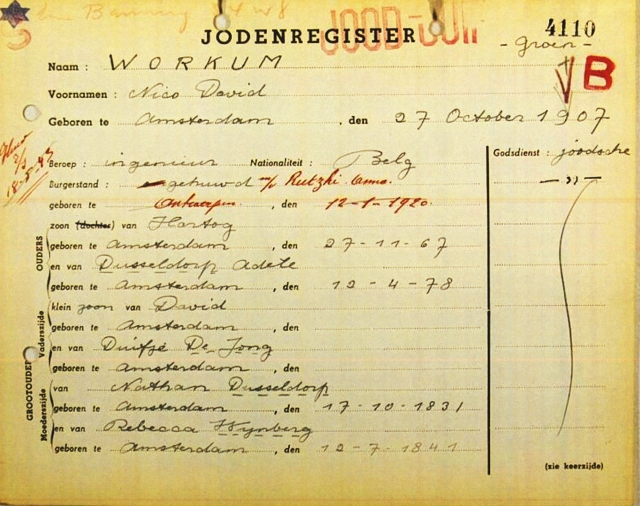 4110
JOOD-JUIF
JODENREGISTER
- Groen -
Naam : WORKUM
VB
Voornamen : Nico David
Geboren te Amsterdam , den 27 October 1907
Beroep : ingenieur Nationaliteit : Belg
Godsdienst : joodsche
Burgerstand : gehuwd Rutzki Anna.
— " —
geboren te Antwerpen , den 12-1-1920.
zoon (dochter) van Hartog
geboren te Amsterdam , den 27-11-67
OUDERS
en van Dusseldorp Adele
geboren te Amsterdam , den 12-4-78
klein zoon van David
geboren te Amsterdam , den
Vaderszijde
en van Duifje De Jong
geboren te Amsterdam , den
GROOTOUDERS
van Nathan Dusseldorp
geboren te Amsterdam , den 17-10-1831
Moederszijde
en van Rebecca Wynberg
geboren te Amsterdam , den 12-7-1841
(zie keerzijde)